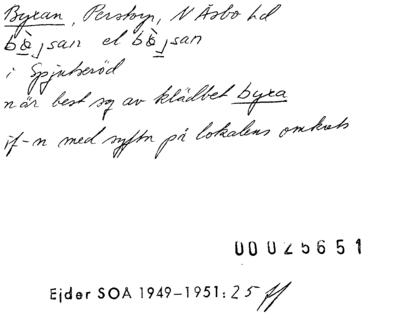 Byxan, Perstorp, N Åsbo hd
bò̱jsan el bò̱jsan
i Spjutseröd
när best sg av klädbet byxa
jf-n med syftn på lokalens omkrets
00025651
Ejder SOA 1949-1951: 25 ff